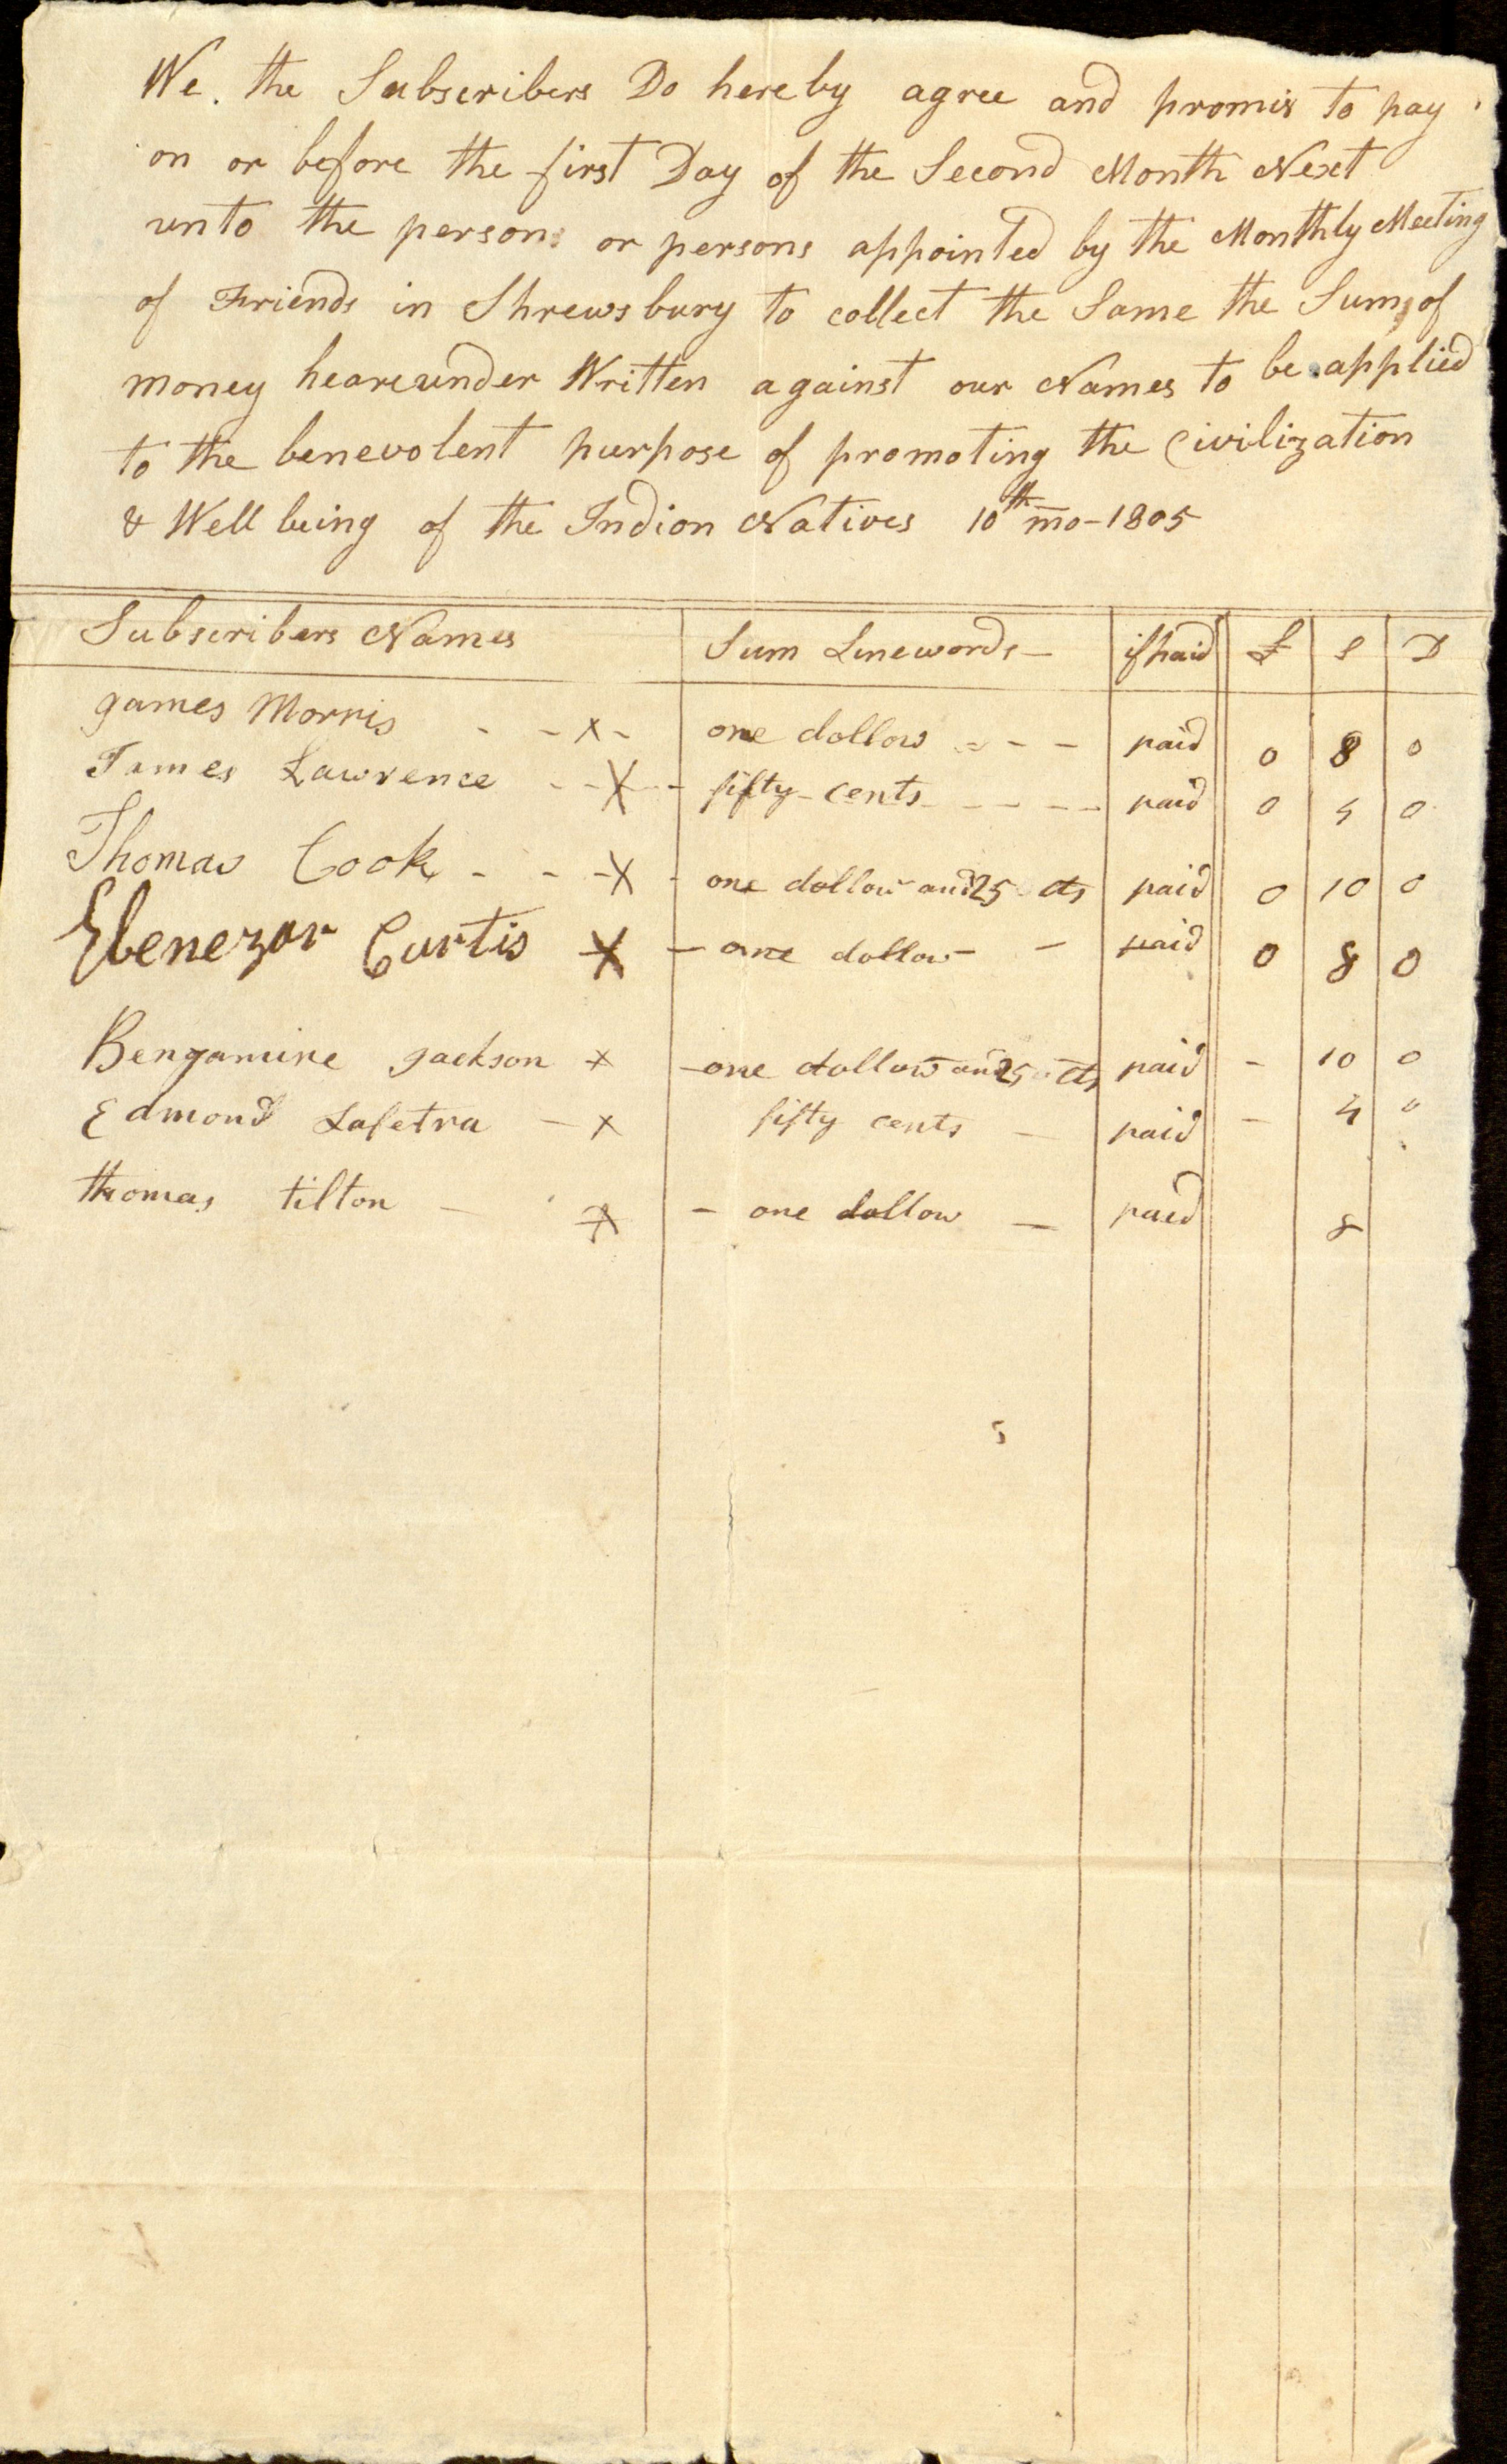 We. the Subscribers Do hereby agree and promis to pay
on or before the first Day of the Second Month Next
unto the person or persons appointed by the Monthly Meeting
of Friends in Shrewsbury to collect the Same the Sums of
money heareunder Written against our Names to be applied
to the benevolent purpose of promoting the Civilization
& Well being of the Indion Natives 10th mo - 1805
Subscribers Names Sum Linewords - if paid £ S D
games Morris - - x - one dollow - - - paid 0 8 0
James Lawrence - - X - fifty cents - - - - paid 0 4 0
Thomas Cook - - - X - one dollow and 25 cts paid 0 10 0
Ebenezor Curtis X - one dollow - - paid 0 8 0
Bengamine gackson x - one dollow and 25 cts paid - 10 0
Edmond Lafetra - x fifty cents - paid - 4 0
thomas tilton - x - one dollow - paid 8
5